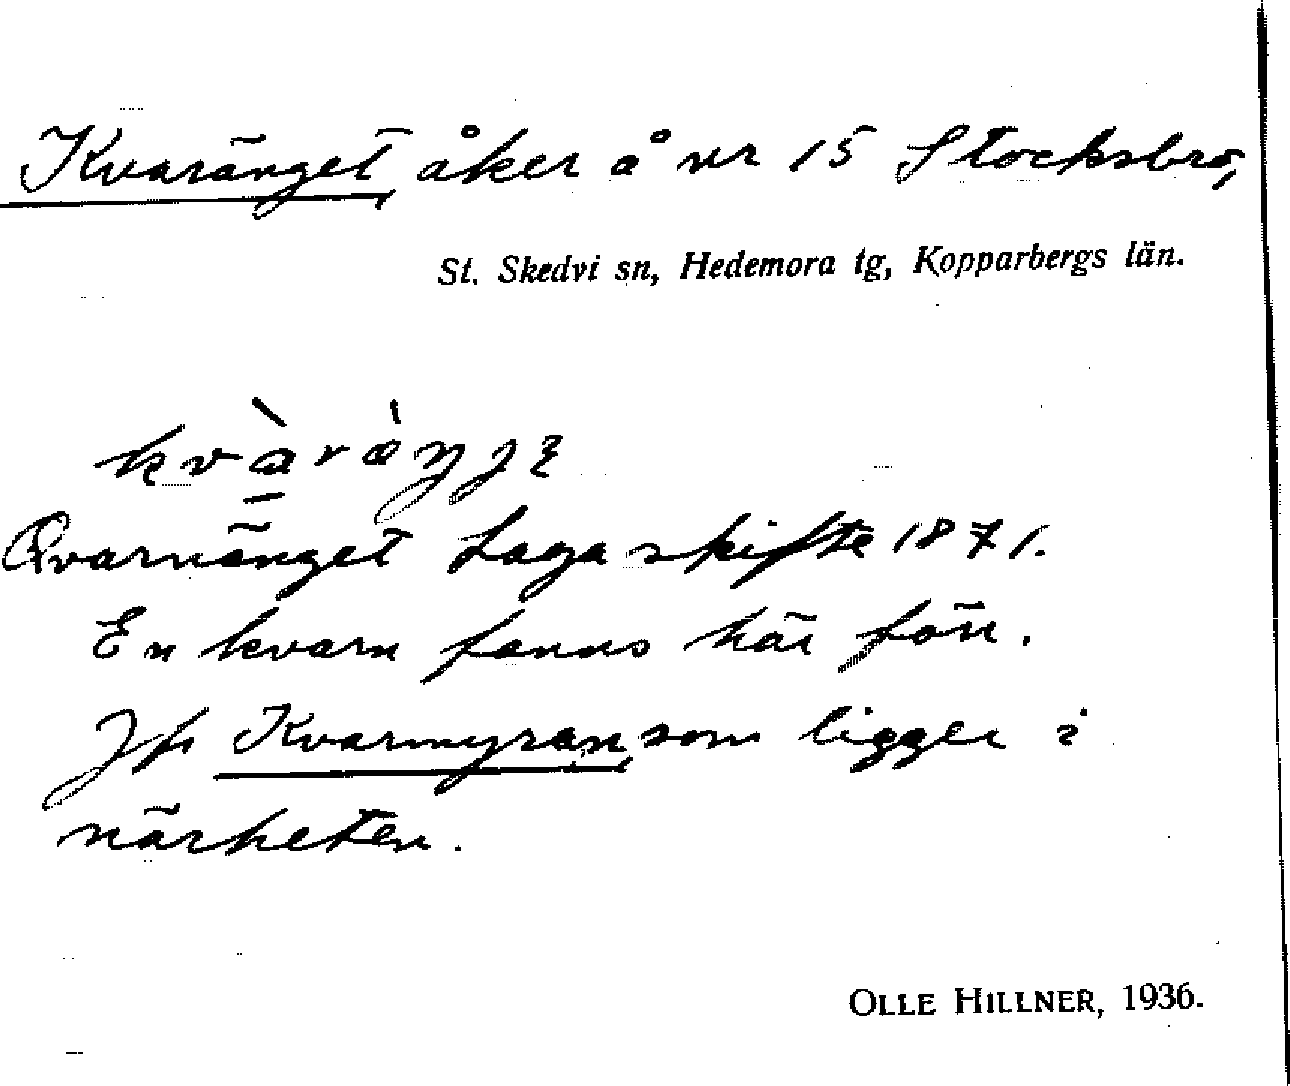 Kvaränget, åker å nr 15 Stocksbro,
St. Skedvi sn, Hedemora tg, Kopparbergs län.
Qvarnänget Laga skifte 1871.
En kvarn fanns här förr.
Jfr Kvarnmyran, som ligger i
närheten.
OLLE HILLNER, 1936.